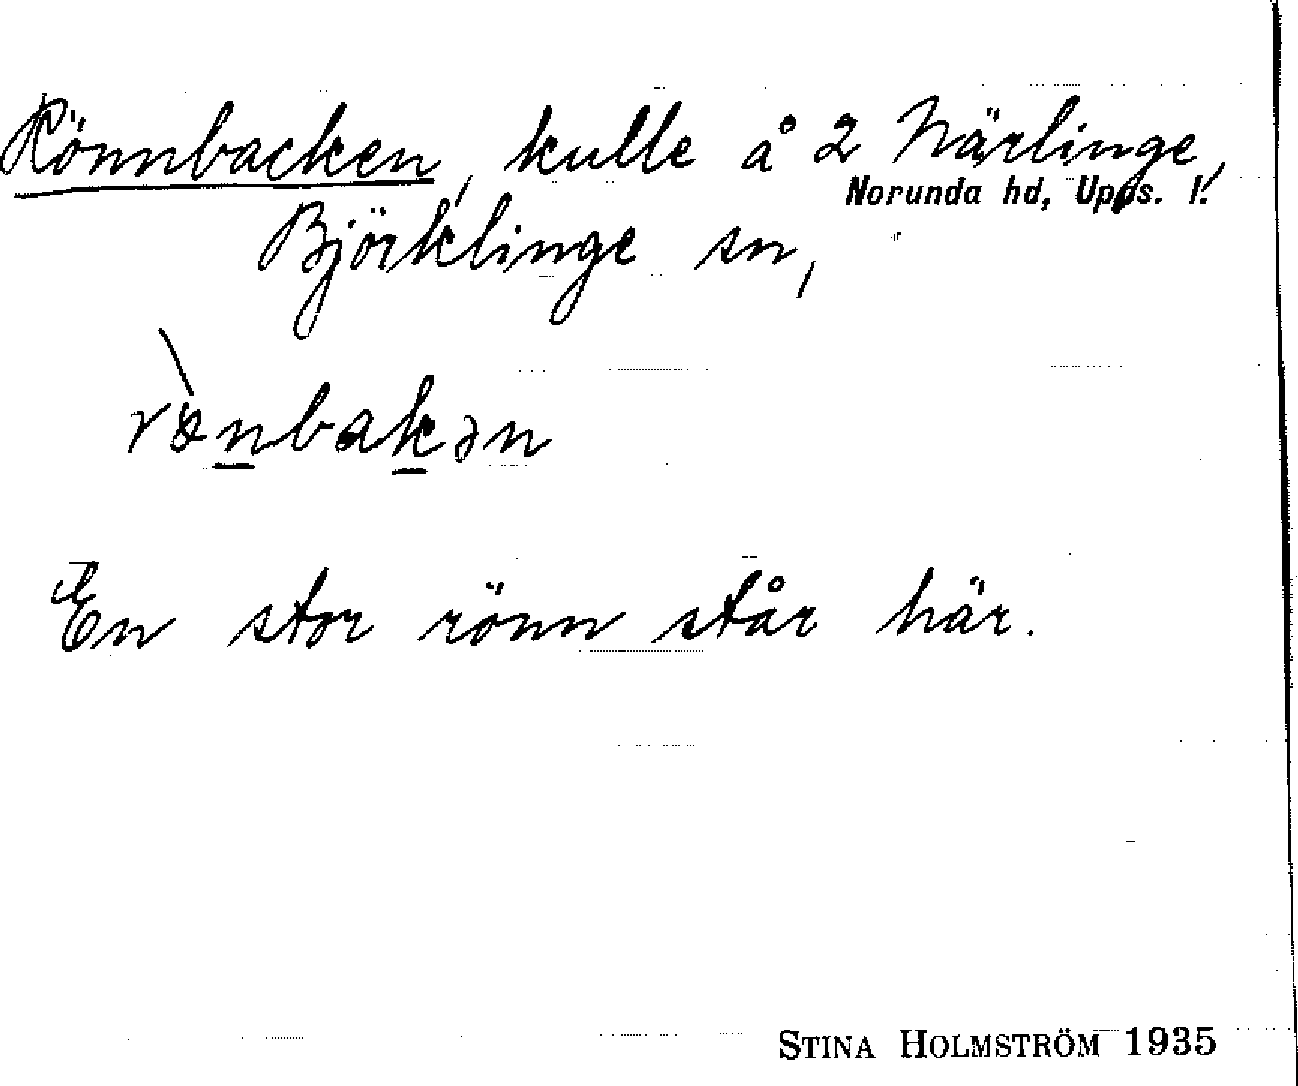 Rönnbacken, kulle å 2 Närlinge,
Norunda hd, Upps. l.
Björklinge sn,
rönbakən
En stor rönn står här.
STINA HOLMSTRÖM 1935